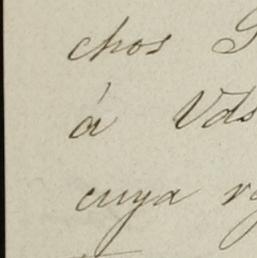 chos
á Vds
cuya